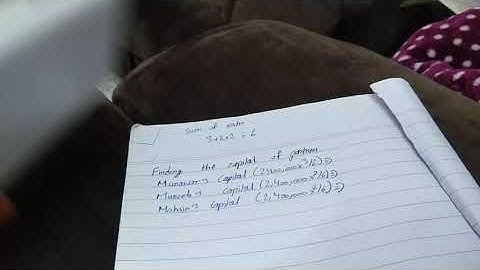 Sum of ratio
3+2+1 = 6
Finding the capital of partner
Munawar's Capital (2,400,000x3/6)⇒
Muneeb's capital (2,400,000x2/6)⇒
Mohsin's Capital (2,400,000x1/6)⇒